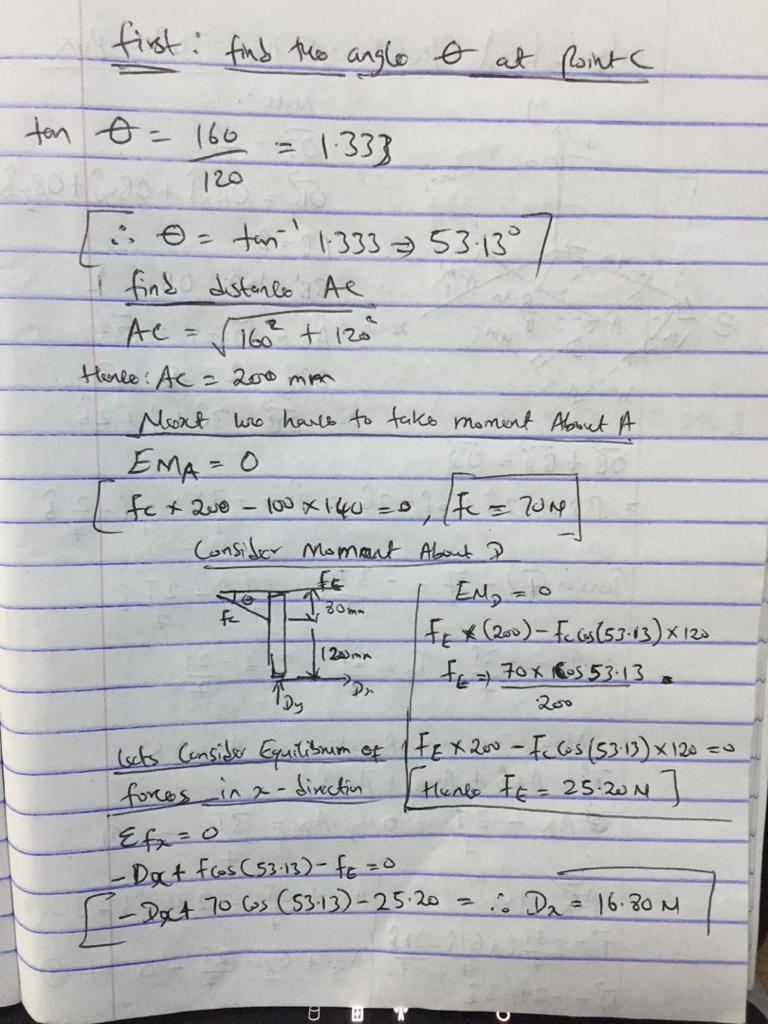 first: find the angle θ at Point C
tan θ = 160/120 = 1.333
[∴ θ = tan⁻¹ 1.333 ⇒ 53.13°]
find distance AC
AC = √160² + 120²
Hence: AC = 200 mm
Next we have to take moment About A
EMA = 0
[fc × 200 - 100 × 140 = 0, fc = 70N]
Consider Moment About D
fE
θ
fc
80mm
120mm
Dx
Dy
EMD = 0
fE × (200) - fc cos(53.13) × 120
fE ⇒ 70 × Cos 53.13
200
fE × 200 - fc Cos (53.13) × 120 = 0
[Hence fE = 25.20 N]
Lets Consider Equilibrum of
forces in x - direction
Σfx = 0
- Dx + fcos(53.13) - fE = 0
[- Dx + 70 Cos (53.13) - 25.20 = ∴ Dx = 16.80 N]